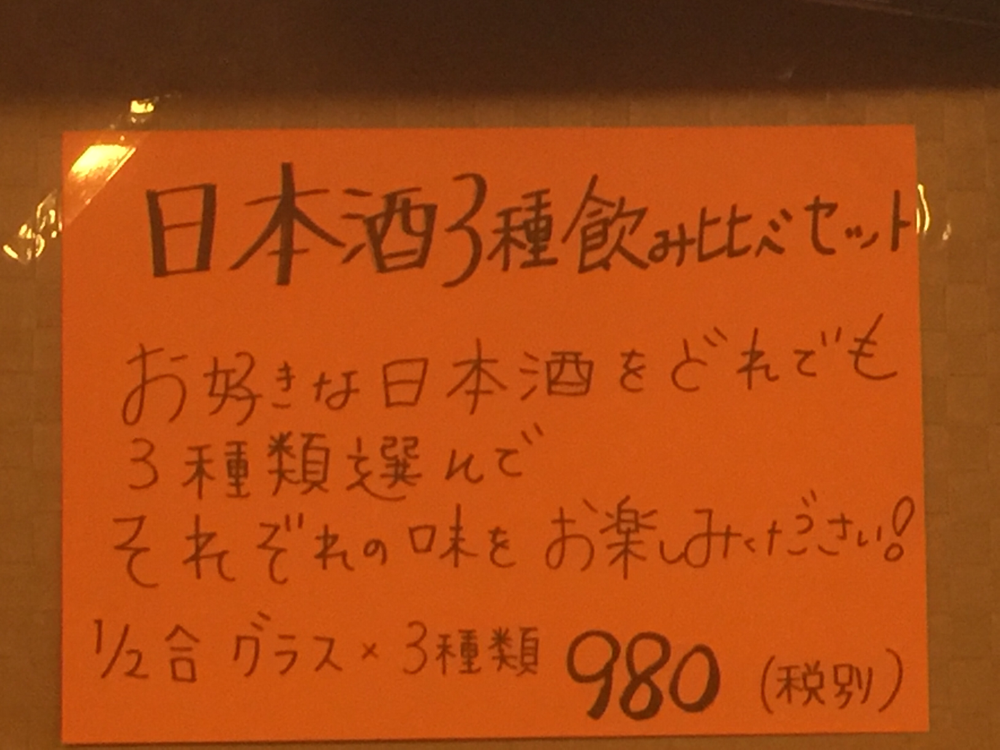 日本酒3種飲み比べセット
お好きな日本酒をどれでも
3種類選んで
それぞれの味をお楽しみください!
1/2合 グラス×3種類 980 (税別)